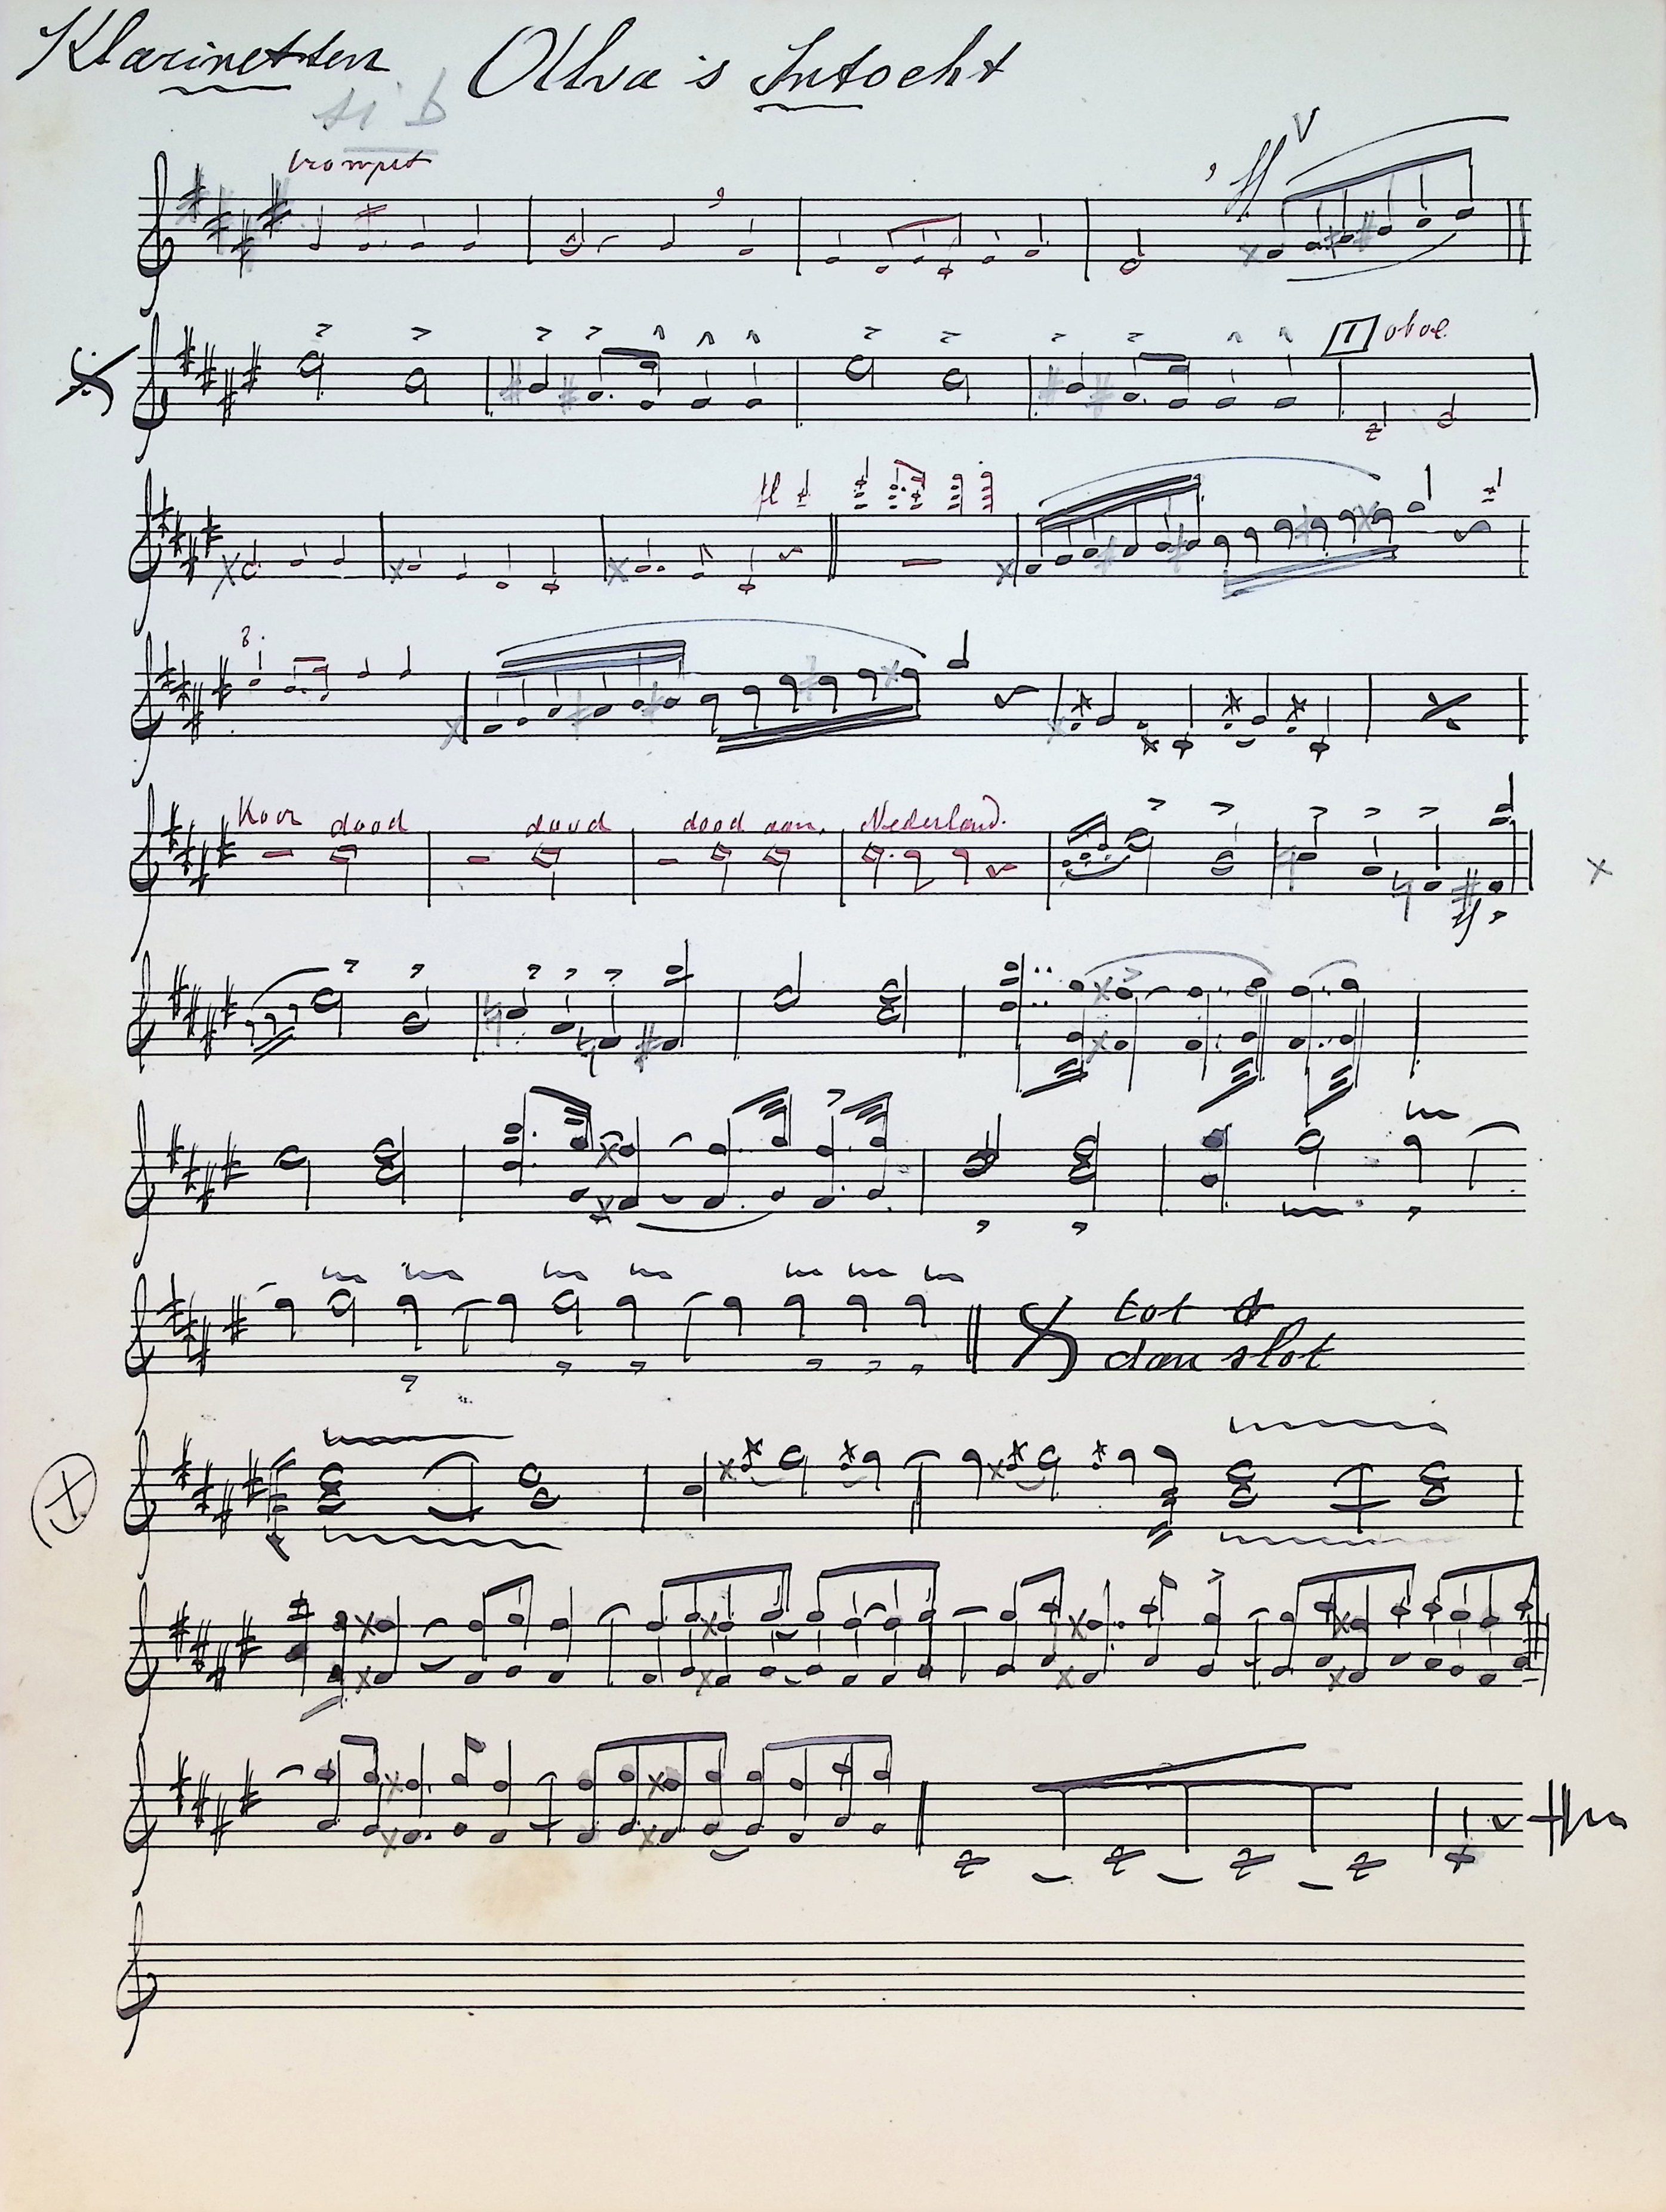 Klarinetten Alva's Intocht
si b
trompet
, ff V
1 oboe
fl
Koor dood dood dood aan Nederland.
ff
tot
dan slot